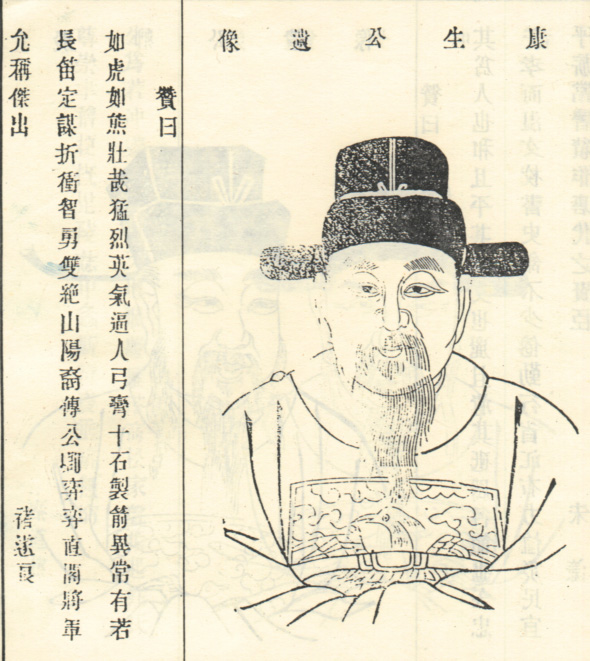 康生公遺像
贊曰
如虎如熊壯哉猛烈英氣逼人弓膂十石製箭異常有若
長笛定謀折衝智勇雙絕山陽裔傳公嗣弈弈直閣將軍
允稱傑出　褚遂良